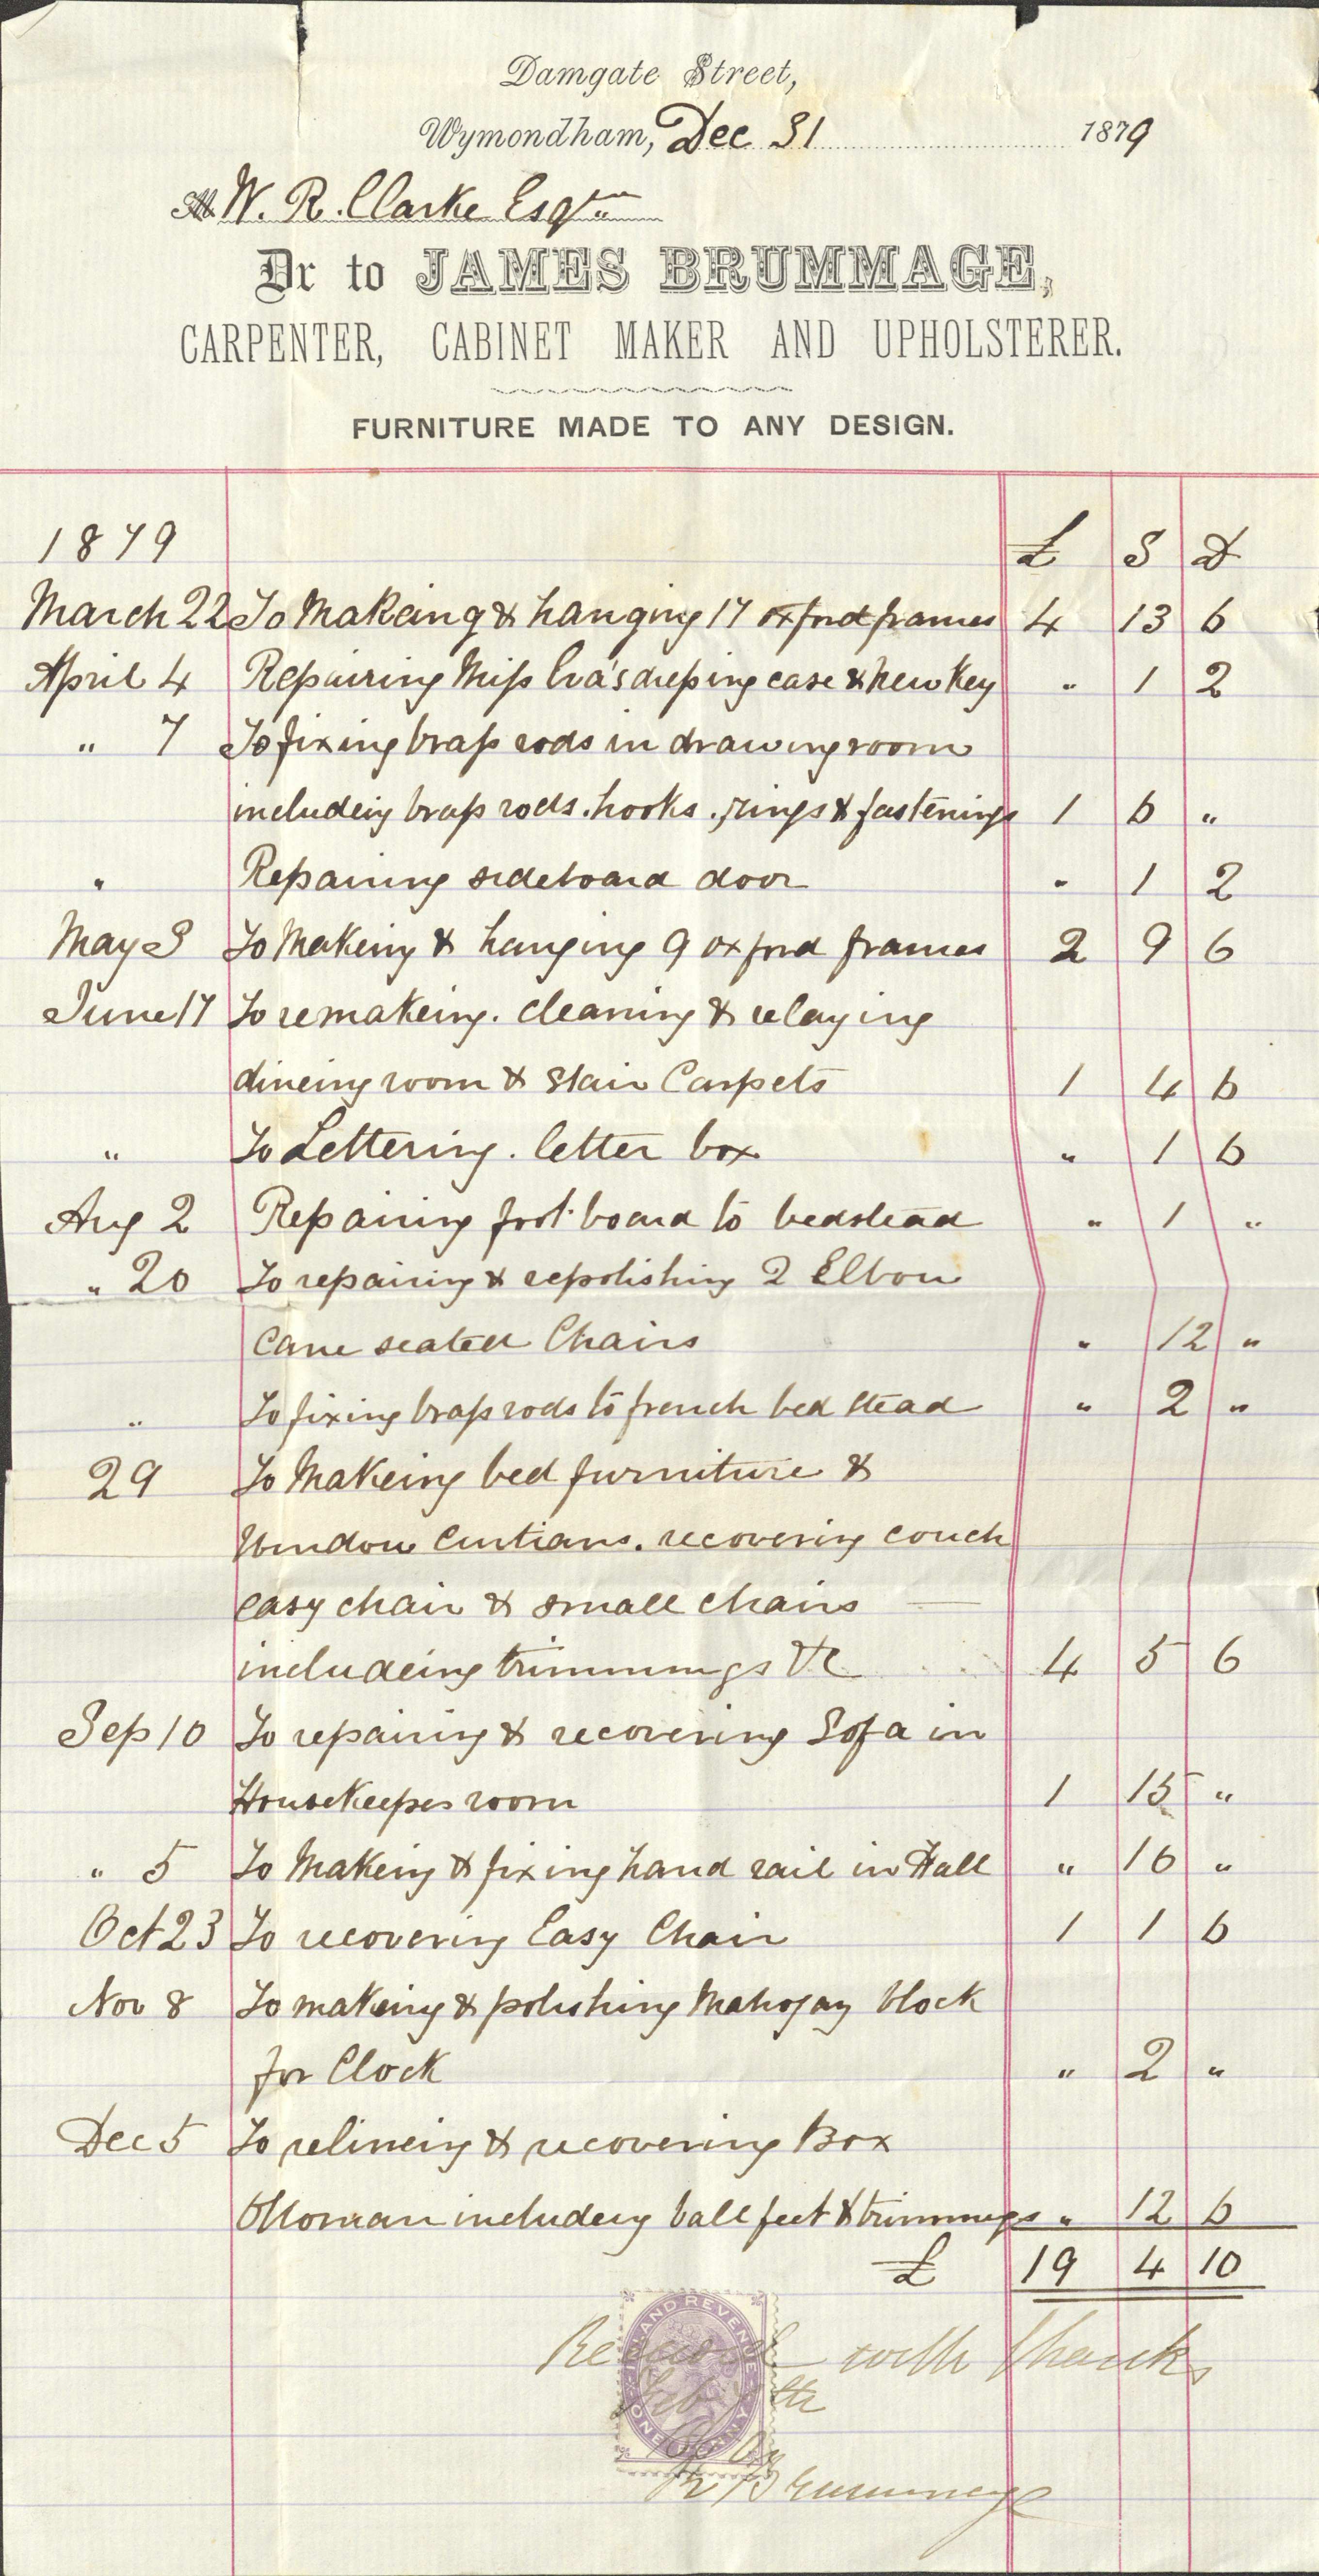 Damgate Street,
Wymondham, Dec 31 1879
M W. R. Clarke Esqre
Dr to JAMES BRUMMAGE,
CARPENTER, CABINET MAKER AND UPHOLSTERER.
FURNITURE MADE TO ANY DESIGN.
1879 £ S D
March 22 To Makeing & hanging 17 oxford frames 4 13 6
April 4 Repairing Miss Eva's dressing case & new Key " 1 2
" 7 To fixing brass rods in drawing room
includeing brass rods. hooks. rings & fastenings 1 6 "
" Repairing sideboard door " 1 2
May 3 To Makeing & hanging 9 oxford frames 2 9 6
June 17 To remakeing. cleaning & relaying
dineing room & stair Carpets 1 4 6
" To Lettering. letter box " 1 6
Aug 2 Repairing foot board to bedstead " 1 "
" 20 To repairing & repolishing 2 Elbow
Cane seated Chairs " 12 "
" To fixing brass rods to french bed stead " 2 "
29 To Makeing bed furniture &
Window Curtians. recovering couch
easy chair & small chairs
includeing trimmings &c 4 5 6
Sep 10 To repairing & recovering Sofa in
Housekeepes room 1 15 "
" 5 To Makeing & fixing hand rail in Hall " 16 "
Oct 23 To recovering Easy Chair 1 1 6
Nov 8 To makeing & polishing Mahogay block
for Clock " 2 "
Dec 5 To relineing & recovering Box
Ottoman includeing ball feet & trimmings " 12 6
£ 19 4 10
INLAND REVENUE
ONE PENNY
Received with thanks
Feb th
Brummage